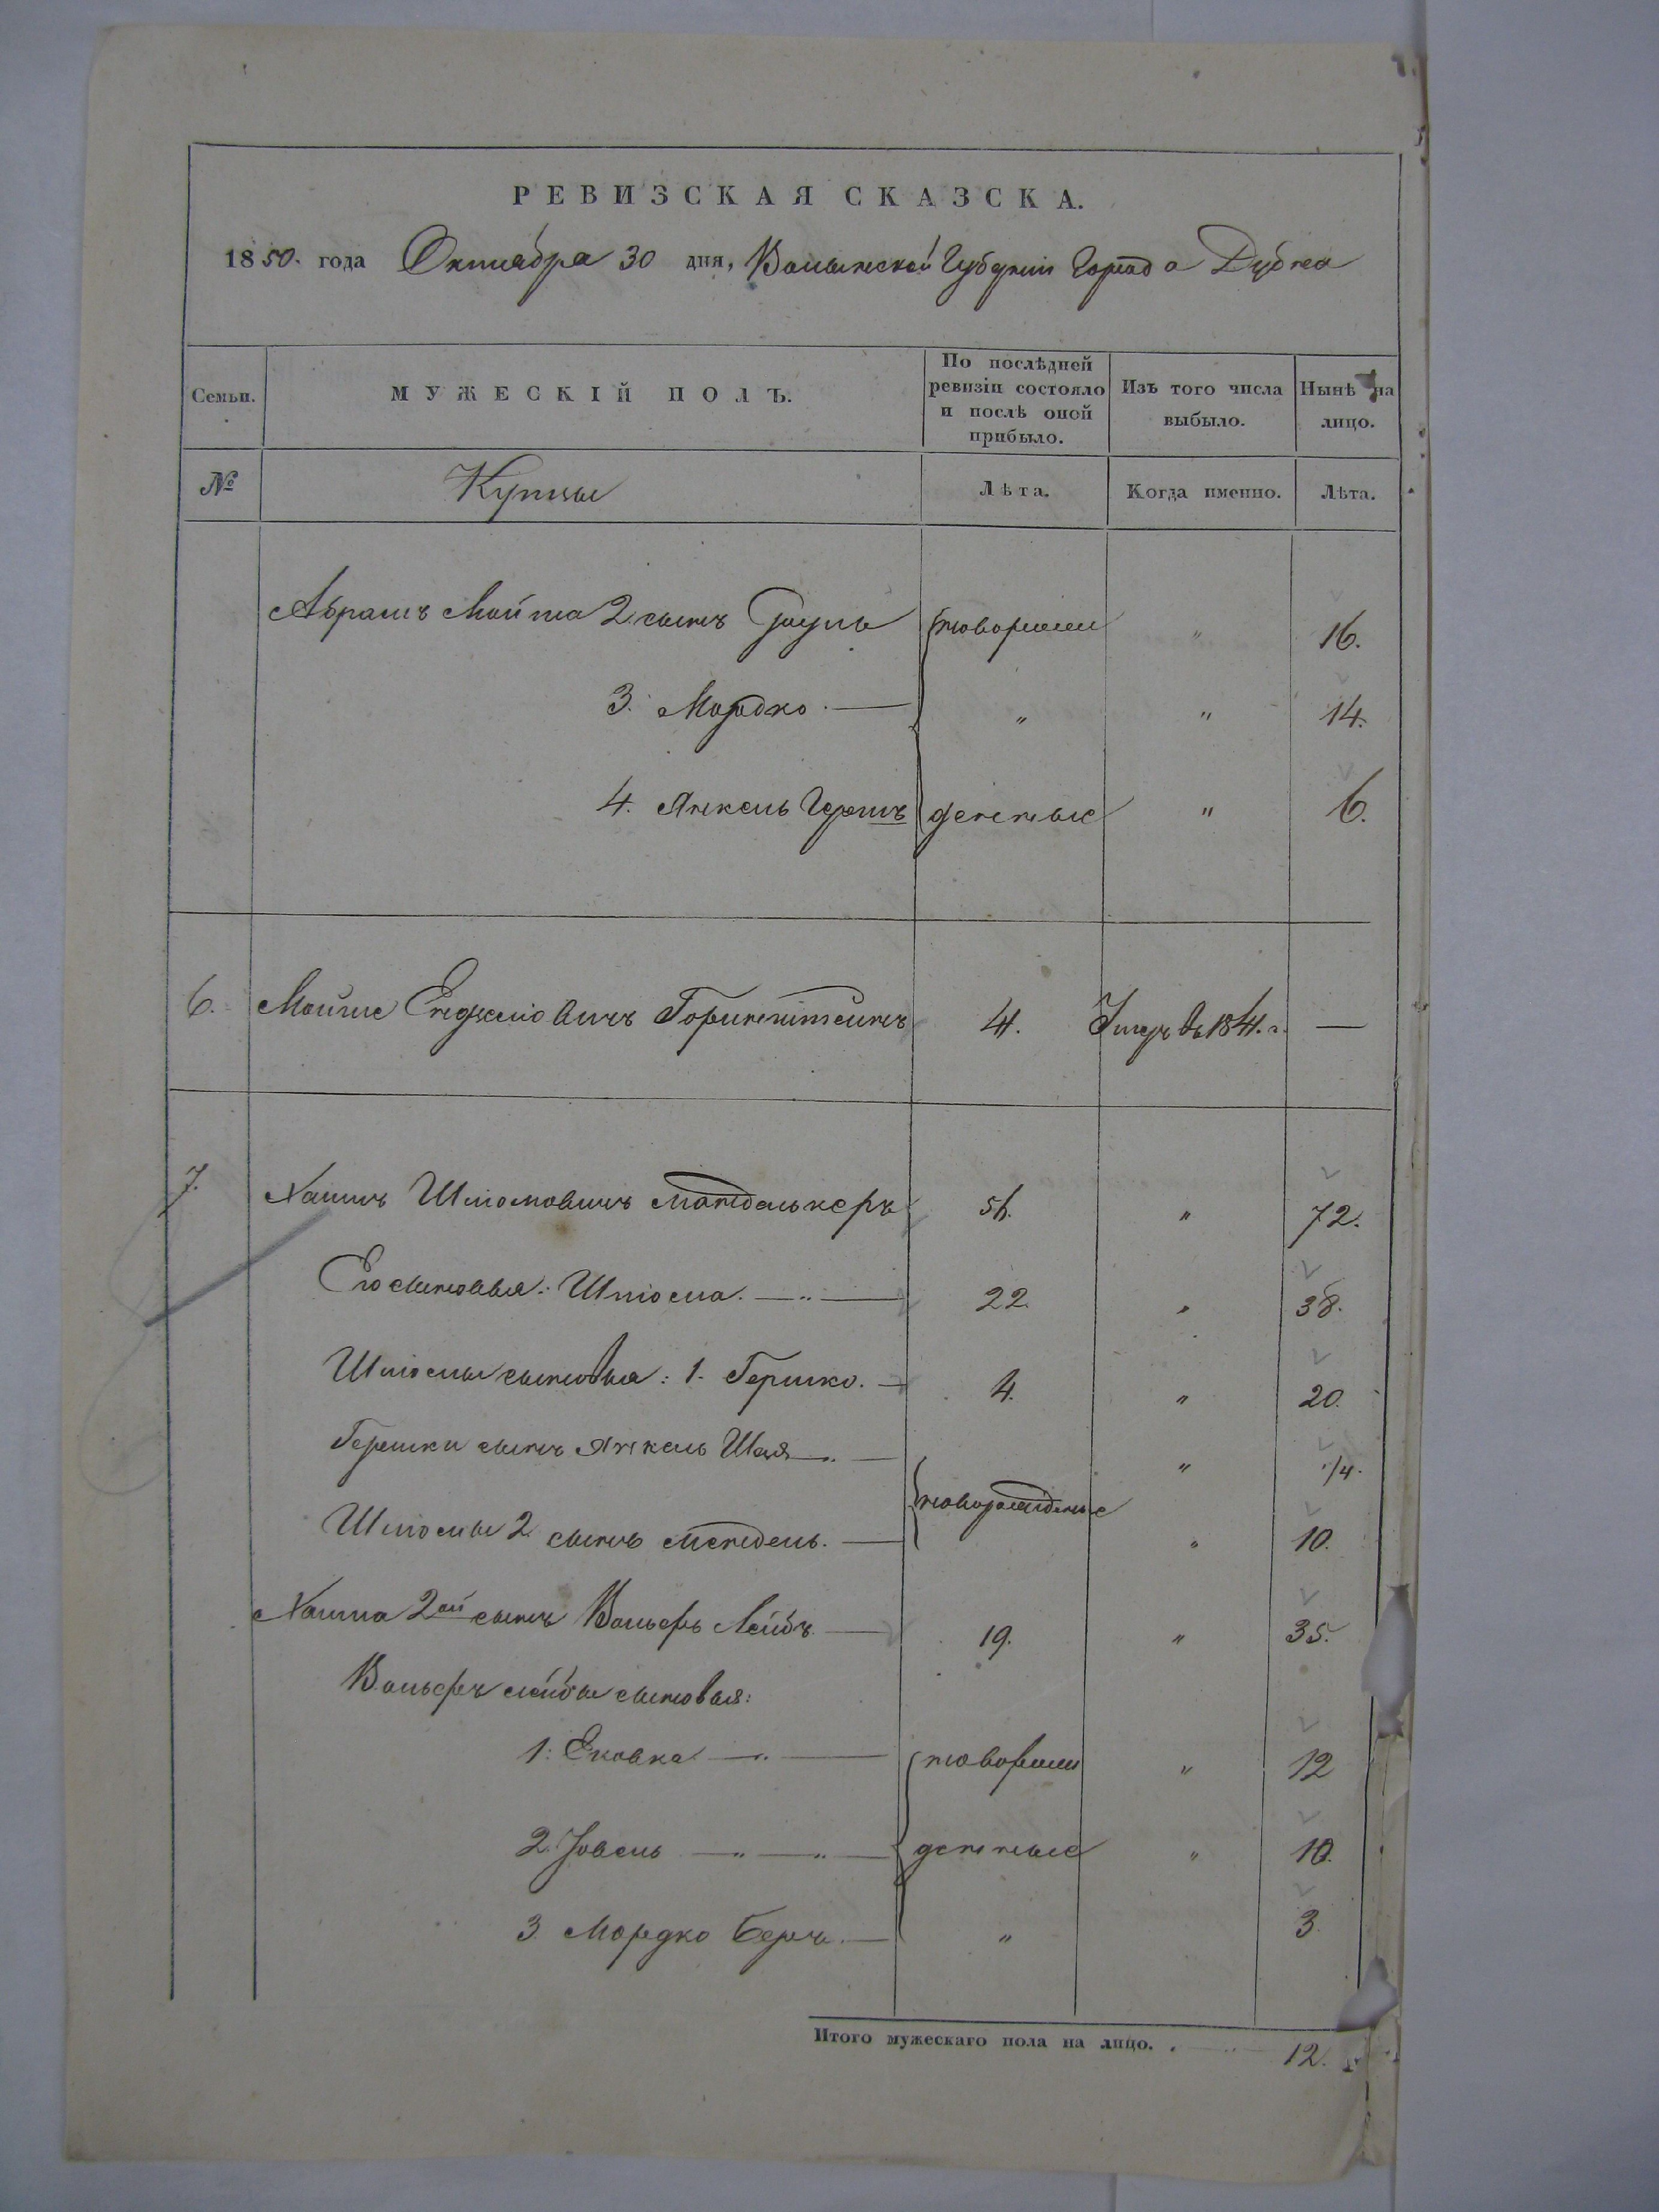 РЕВИЗСКАЯ СКАЗСКА.
1850. года Октября 30 дня, Волынской Губернии Города Дубна
Семьи. МУЖЕСКІЙ ПОЛЪ. По послѣдней ревизіи состояло и послѣ оной прибыло. Изъ того числа выбыло. Нынѣ на лицо.
№ Купцы Лѣта. Когда именно. Лѣта.
Абрамъ Мойша 2 сынъ новорож " 16.
3. Мордко — " " 14.
4. Янкель Гершъ денные " 6.
6. Мойше Горинштейнъ 4. Умеръ въ 184 г. —
7. Хаимъ Шліомовичъ Манделькеръ 56. " 72.
Его сыновья: Шліома. — " — 22. " 38.
Шліомы сыновья: 1. Гершко. — 4. " 20.
Гершки сынъ Янкель Шая " — " 1/4.
новорожденные
Шліомы 2 сынъ Мендель. — " 10.
Хаима 2ой сынъ Вольфъ Лейбъ — 19. " 35.
Вольфъ Лейбы сыновья:
1: — " — новорож " 12
2. Іовель — " — " — денные " 10.
3. Мордко Беръ. — " 3.
Итого мужескаго пола на лицо. . — " 12.